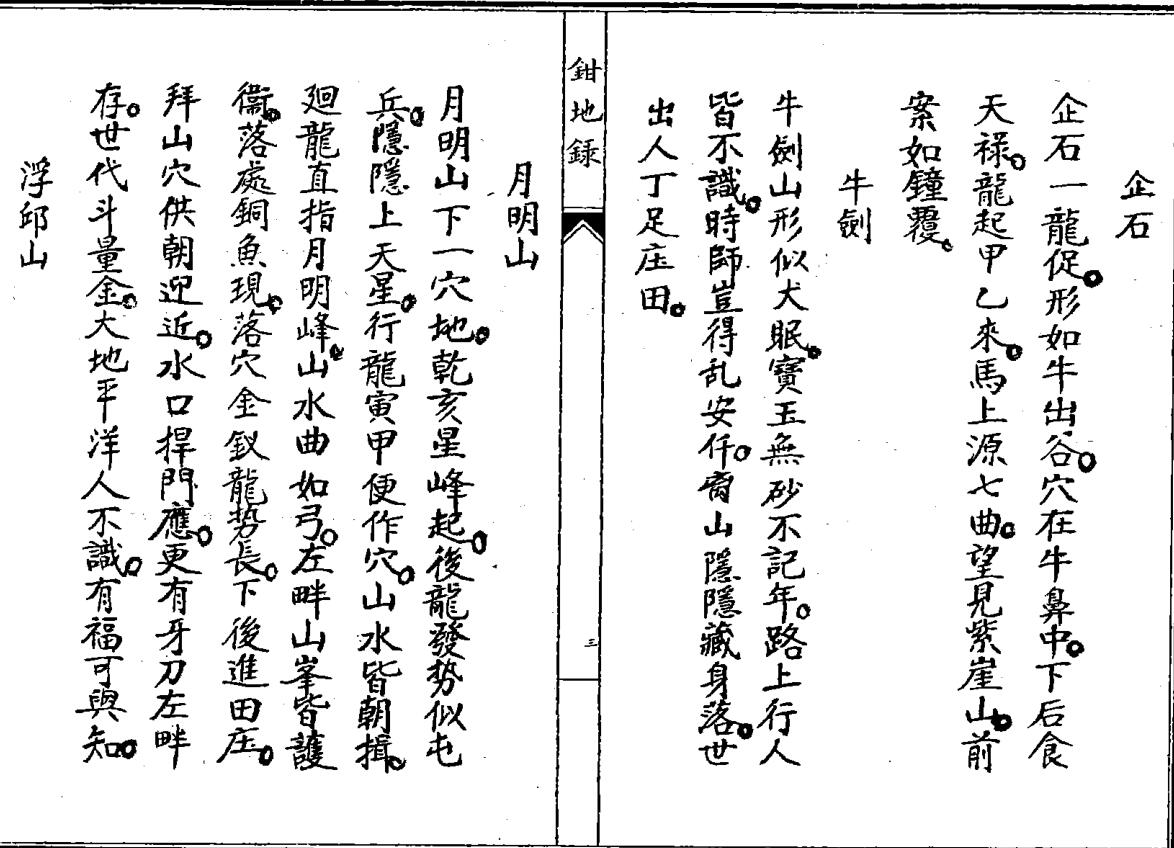 企石
企石一龍促。形如牛出谷。穴在牛鼻中。下后食
天祿。龍起甲乙來。馬上源七曲。望見紫崖山。前
案如鐘覆。
牛劍
牛劍山形似犬眠。寶玉無砂不記年。路上行人
皆不識。時師豈得乱安仟。裔山隱隱藏身落。世
出人丁足庄田。
鉗地録
三
月明山
月明山下一穴地。乾亥星峰起。後龍發势似屯
兵。隱隱上天星。行龍寅甲便作穴。山水皆朝揖。
廻龍直指月明峰。山水曲如弓。左畔山峯皆護
衞。落處銅魚現。落穴金釵龍势長。下後進田庄。
拜山穴供朝迎近。水口捍門應。更有牙刀左畔
存。世代斗量金。大地平洋人不識。有福可與知。
浮邱山